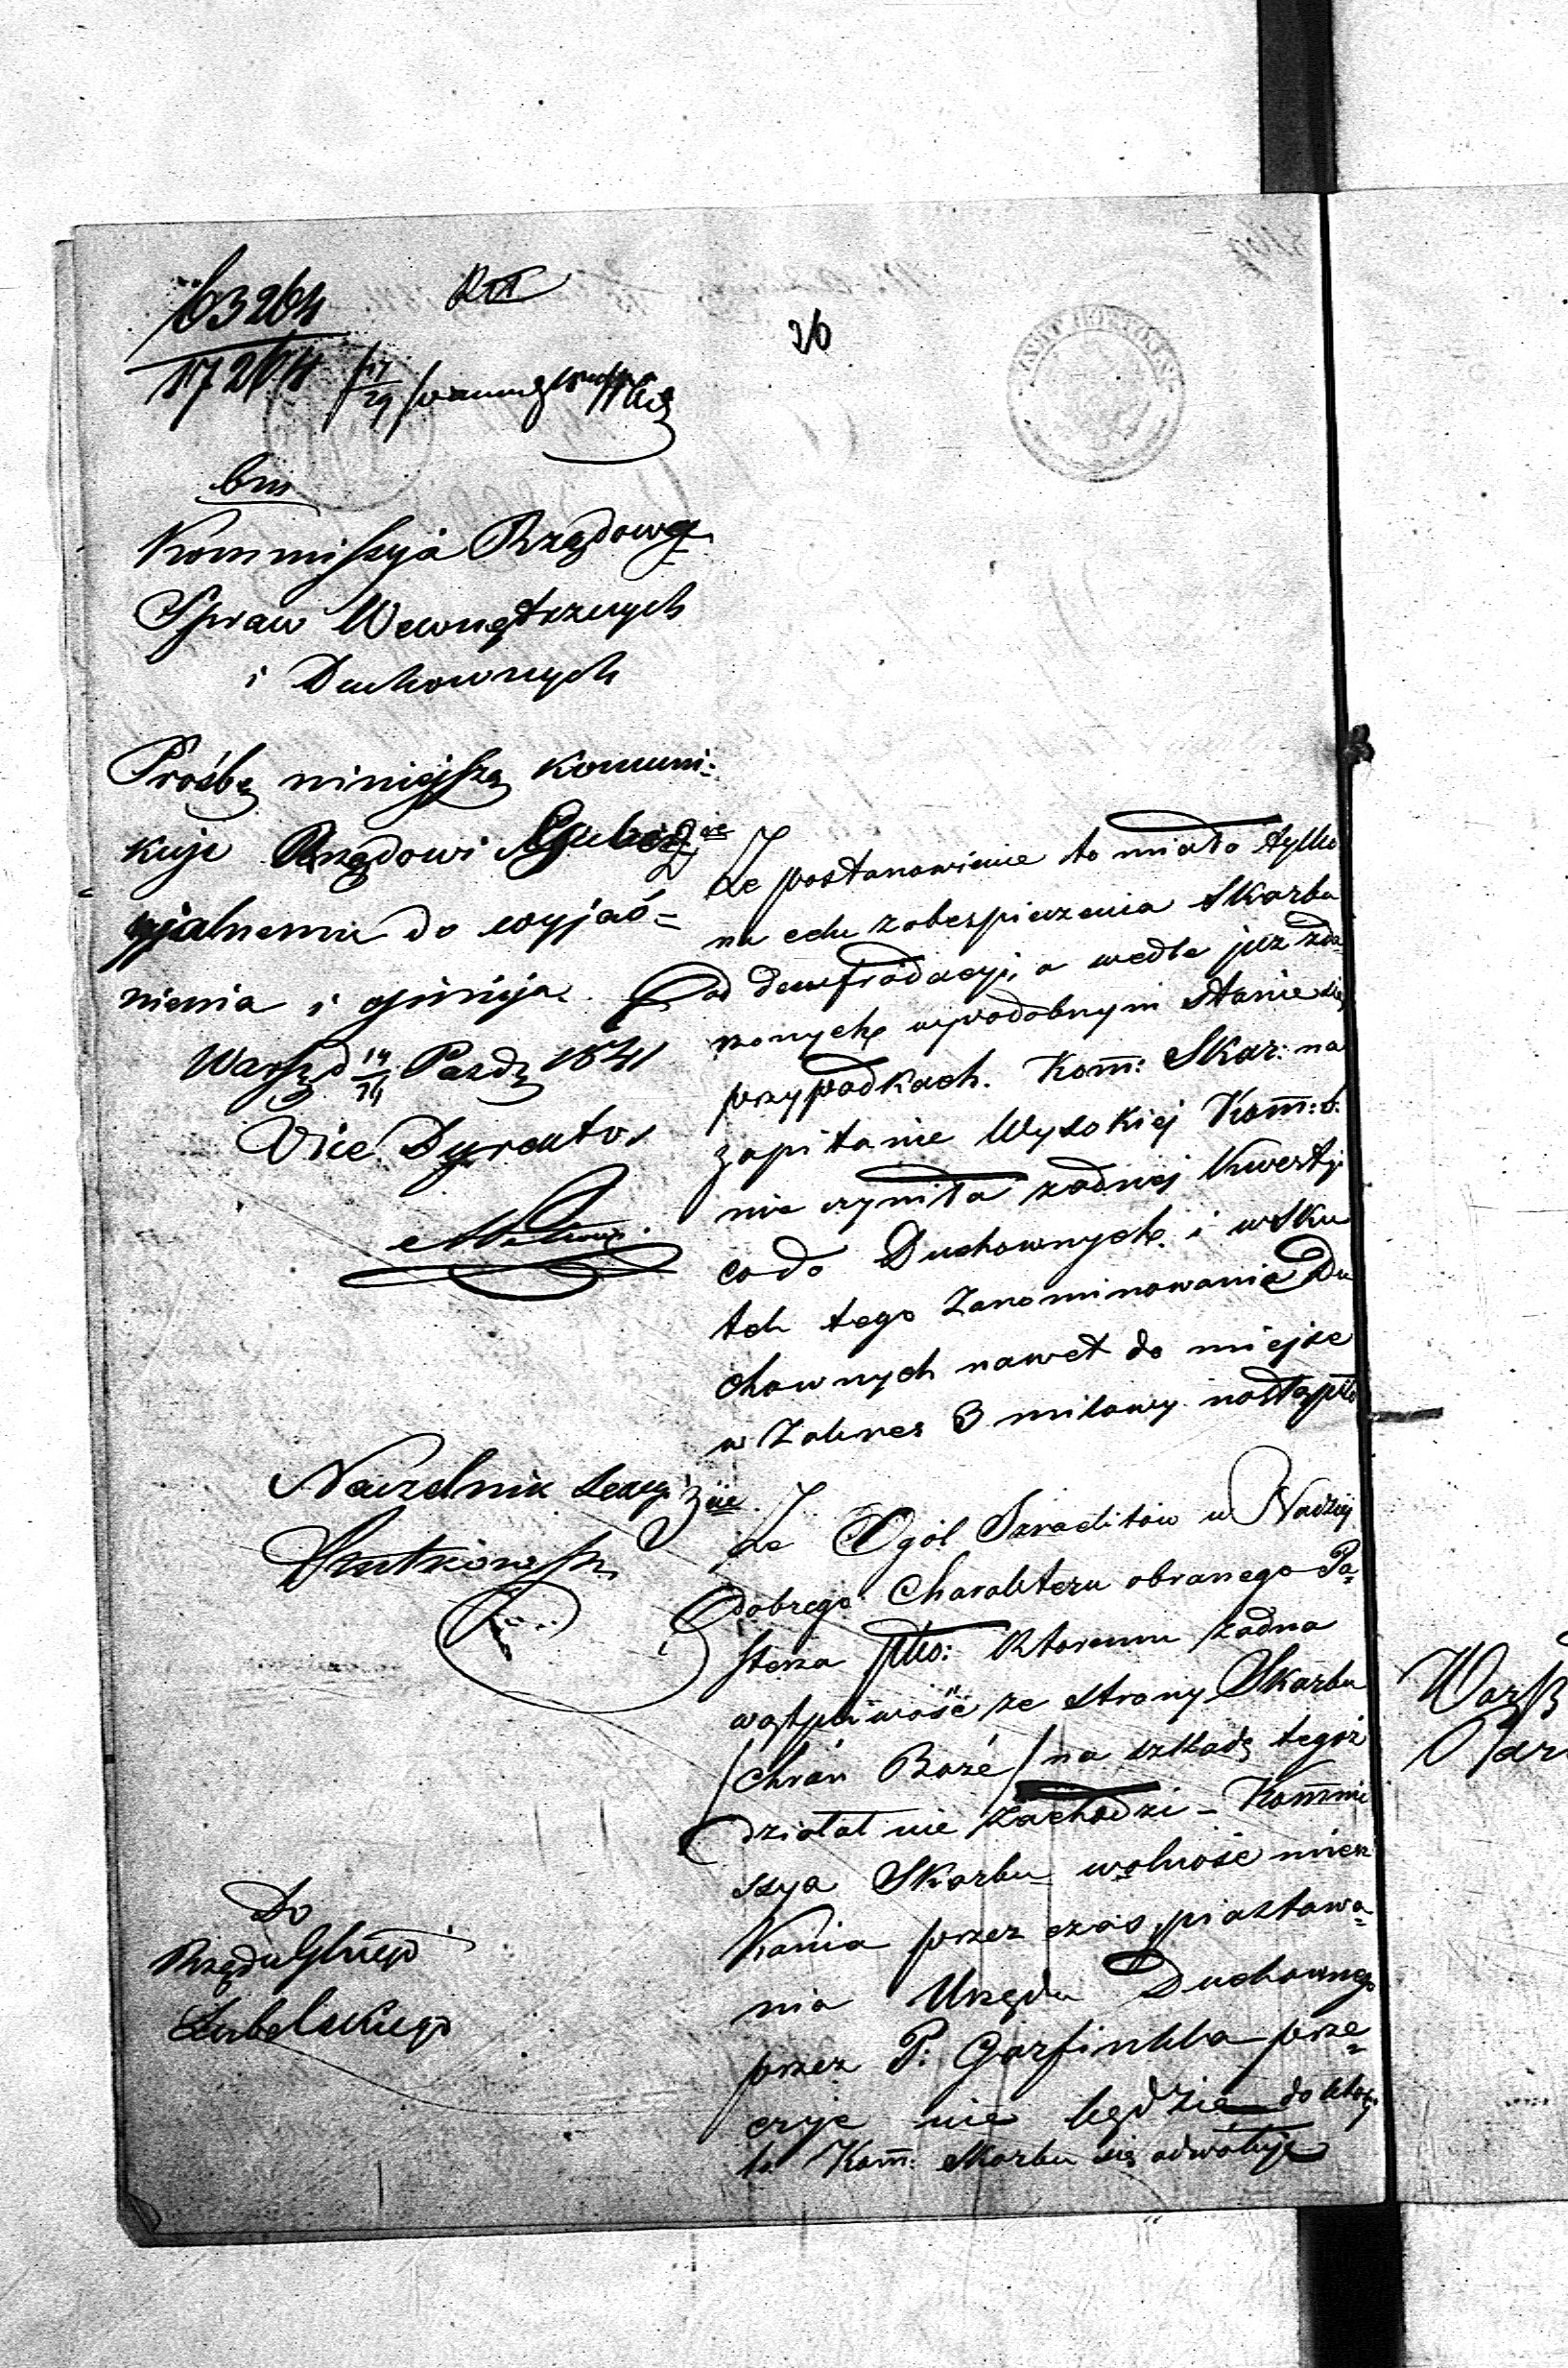 63264
17264
26
bm
Kommissyja Rządowa
Spraw Wewnętrznych
i Duchownych
Prośbę niniejszą komuni-
kuje Rządowi Guber
jalnemu do wyjaś=
nienia i opinija
Warsz d 14/26 Pazdz 1841
Vice Dyrektor
Naczelnik Sekcyi
Do
Rządu Gbnego
Lubelskiego
Ze postanowienie to miało tylko
na celu zabespieczenia Skarbu
od deufradacyi, a wedle już zda
rzonych w podobnym Stanie się
przypadkach. Kom: Skar: na
zapitanie Wysokiej Kom: S.
nie czyniła żadnej kwestyi
co do Duchownych i w sku
tek tego Zanominowanie Du
chownych nawet do miejsc
w Zakres 3 milowy nastąpiło
Ze Ogół Izraelitów w Nadziej
dobrego Charakteru obranego Pa=
sterza któremu żadna
wątpliwość ze strony Skarbu
/chroń Boże/ na szkodę tegoż
działał nie zachodzi – Kommi
ssya Skarbu wolność miesz
kania przez czas piastowa=
nia Urzędu Duchownego
przez P. Garfinkla prze=
czyć nie będzie do któr
Kom: Skarbu się odwołuję
Warsz